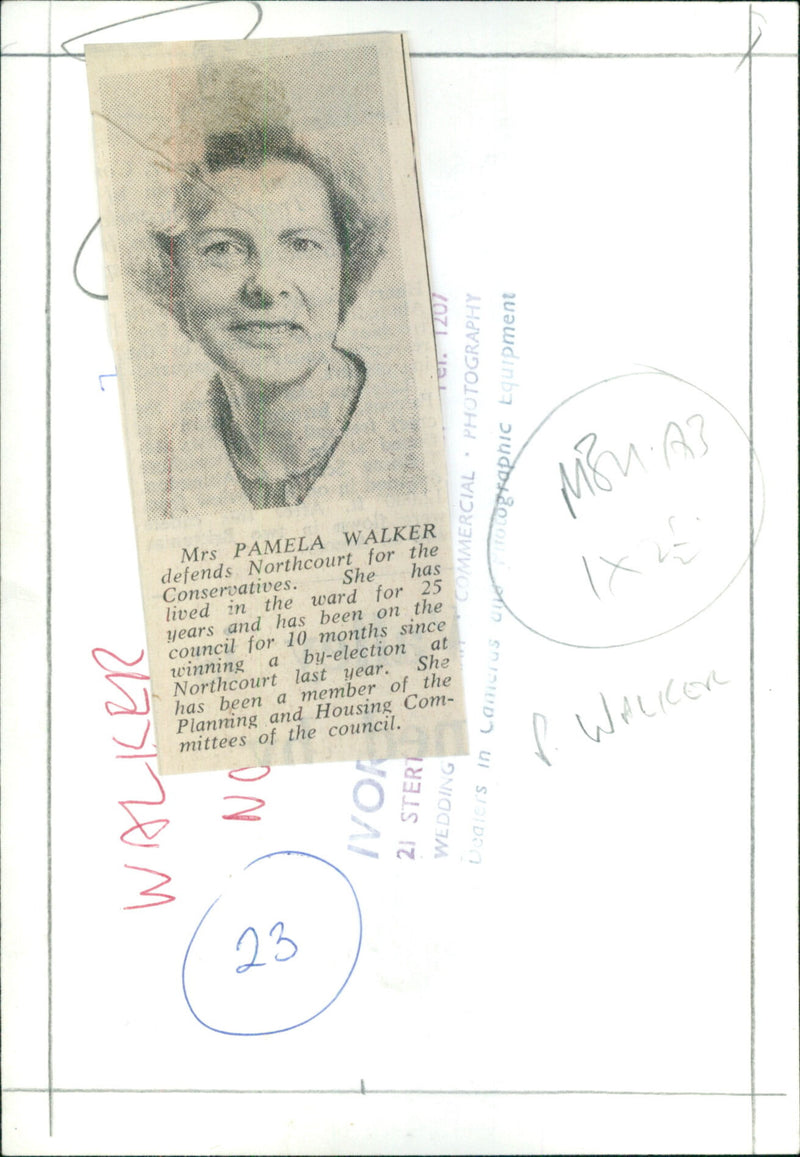 Mrs PAMELA WALKER
defends Northcourt for the
Conservatives. She has
lived in the ward for 25
years and has been on the
council for 10 months since
winning a by-election at
Northcourt last year. She
has been a member of the
Planning and Housing Com-
mittees of the council.
WALKER
NO
23
IVOR
21 STERT
Tel. 1207
WEDDING
COMMERCIAL · PHOTOGRAPHY
Dealers in Cameras and Photographic Equipment
1 X 2½
P. WALKER